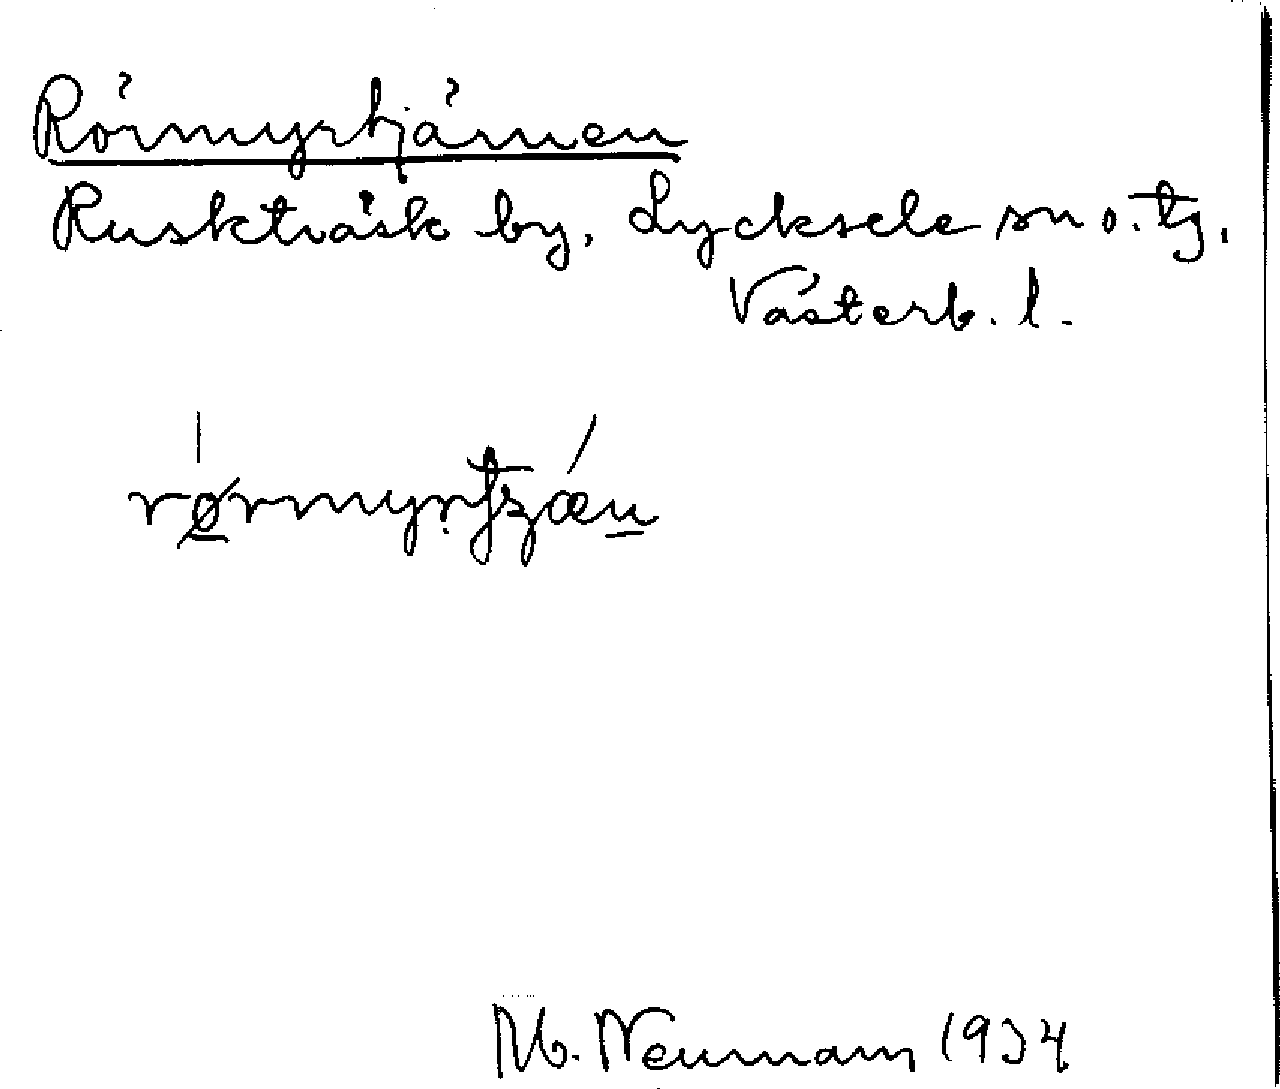 Rörmyrtjärnen
Ruskträsk by, Lycksele sn o. tg.
Västerb. l.
M. Neumann 1934